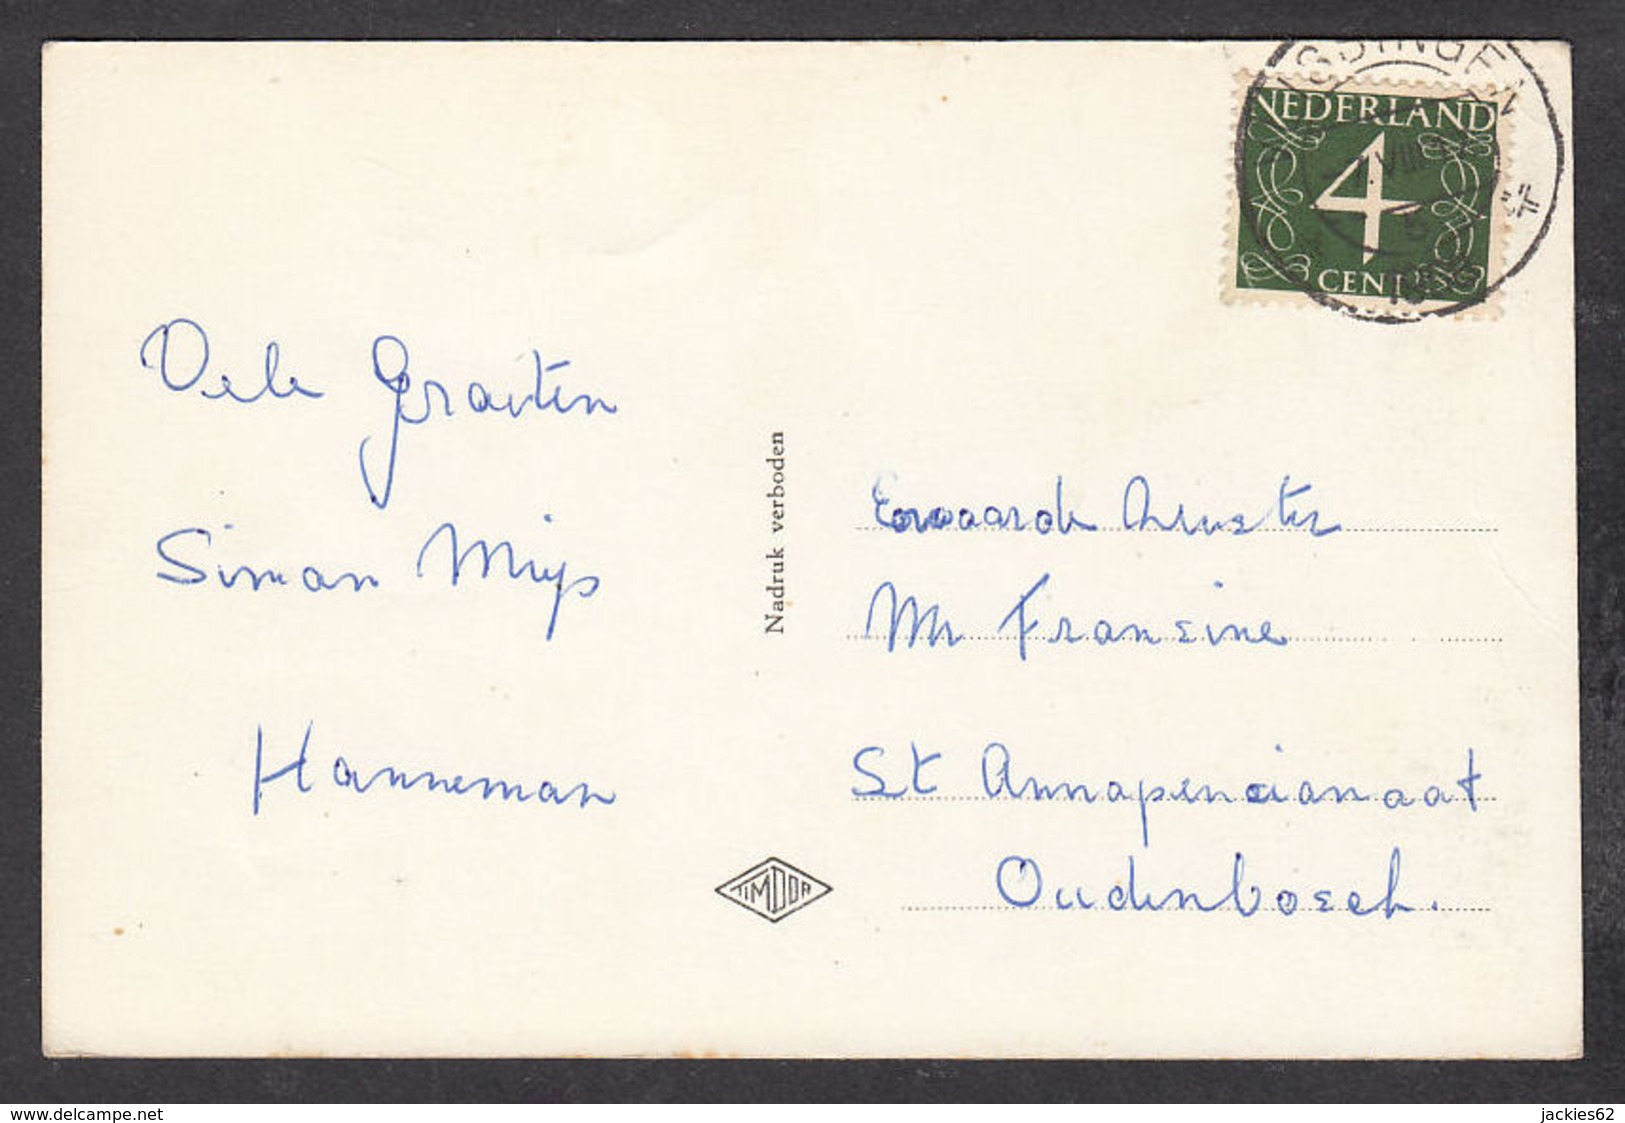 Vele Groeten
Simon Mijs
Hanneman
Nadruk verboden
TIMDOR
NEDERLAND
4
CENT
VIII
Eerwaarde Zuster
Mr Francine
St Annapencionaat
Oudenbosch.
www.delcampe.net
jackies62